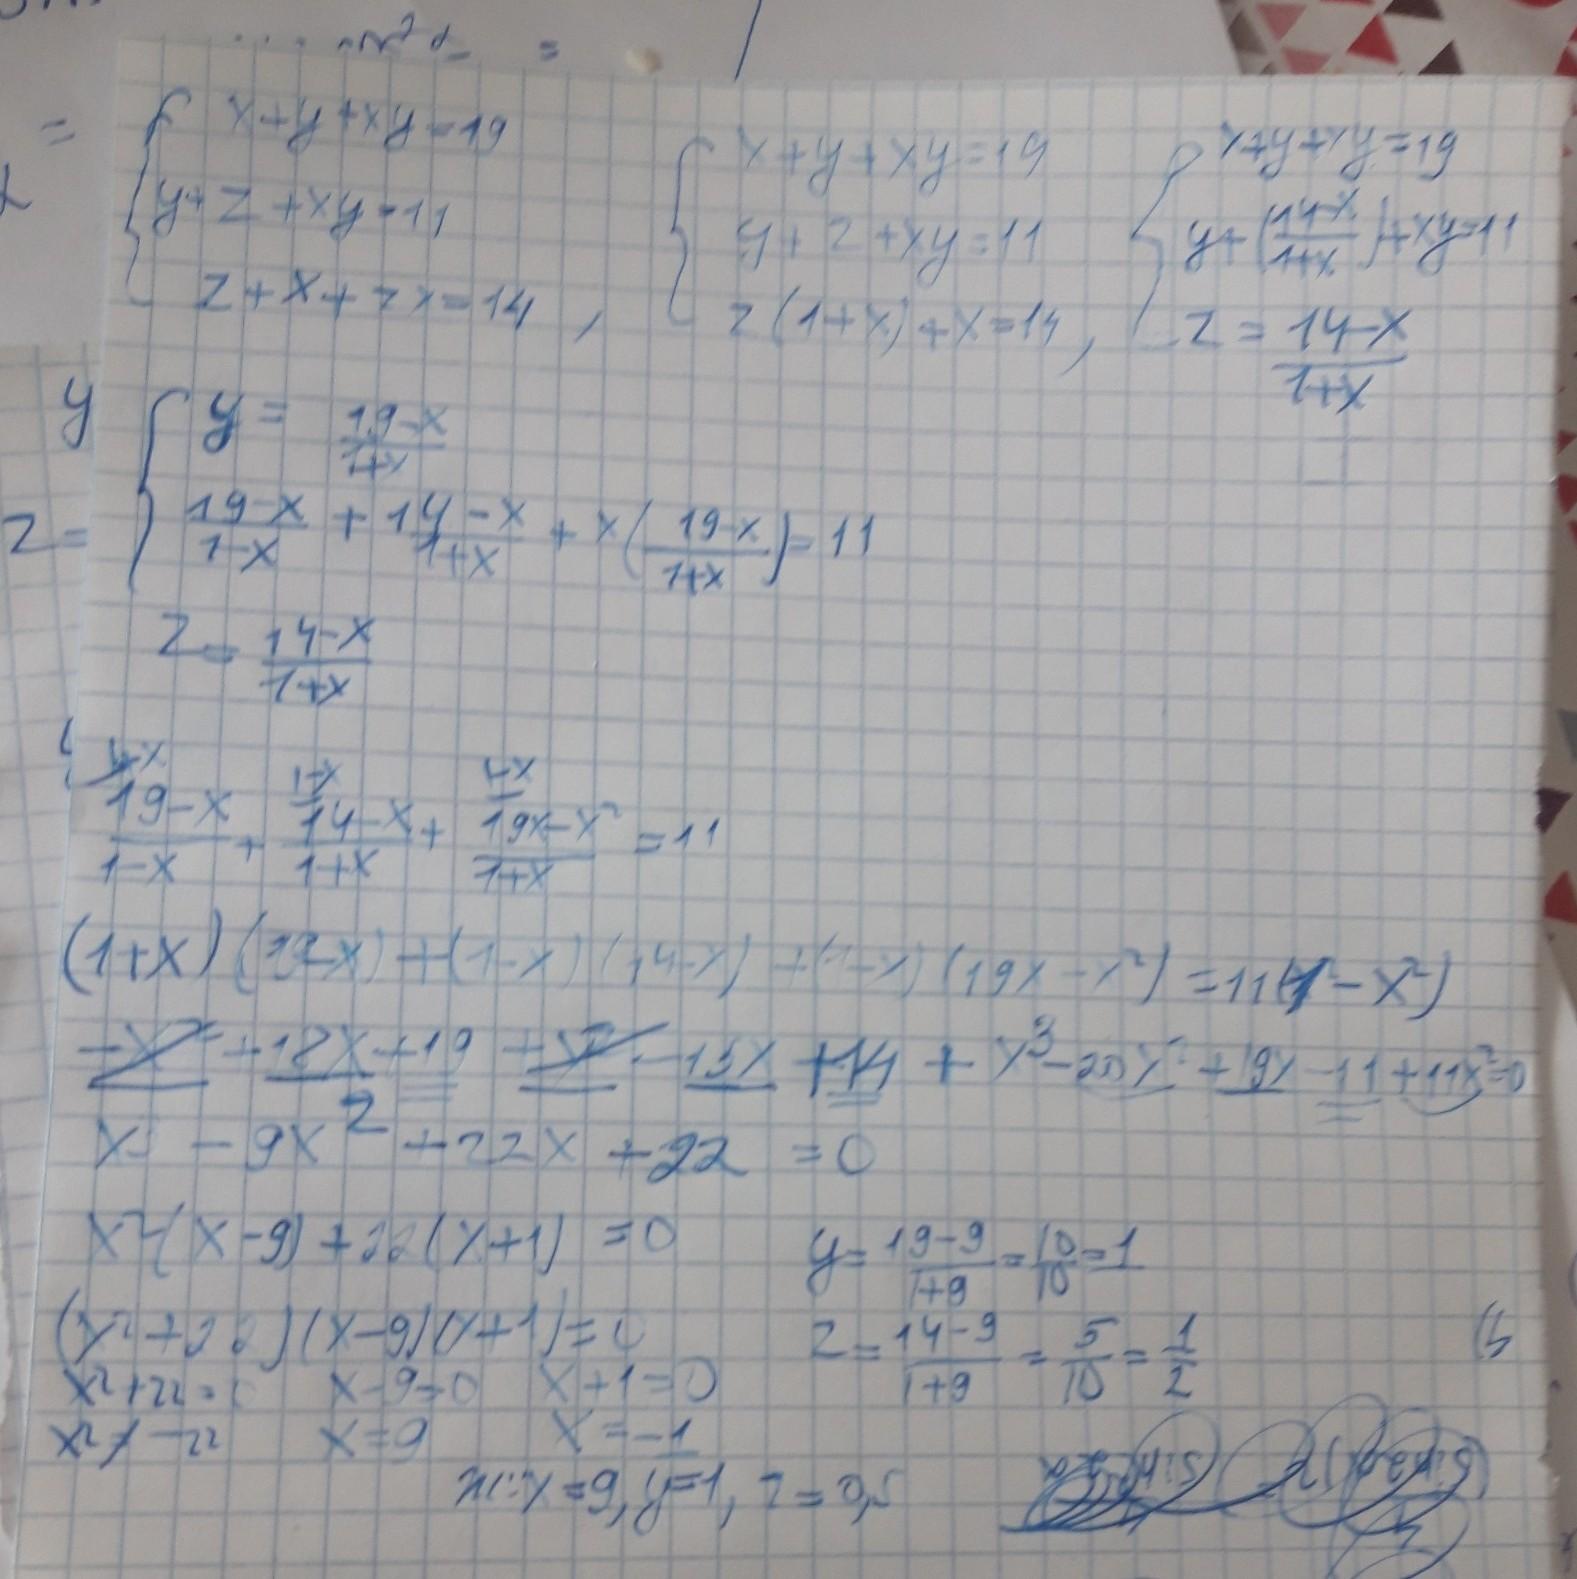 x+y+xy=19
y+z+xy=11
z+x+zx=14,
x+y+xy=19
y+z+xy=11
z(1+x)+x=14,
x+y+xy=19
y+(14-x/1+x)+xy=11
z=14-x/1+x
y
z=
y=19-x/1+x
19-x/1-x+14-x/1+x+x(19-x/1+x)=11
z=14-x/1+x
19-x/1-x+14-x/1+x+19x-x²/1+x=11
(1+x)(19-x)+(1-x)(14-x)+(1-x)(19x-x²)=11(1-x²)
-x²+18x+19+x²-15x+14+x³-20x²+19x-11+11x²=0
x³-9x²+22x+22=0
x²(x-9)+22(x+1)=0
(x²+22)(x-9)(x+1)=0
x²+22=0 x-9=0 x+1=0
x²≠-22 x=9 x=-1
y=19-9/1+9=10/10=1
z=14-9/1+9=5/10=1/2
x=9, y=1, z=0,5